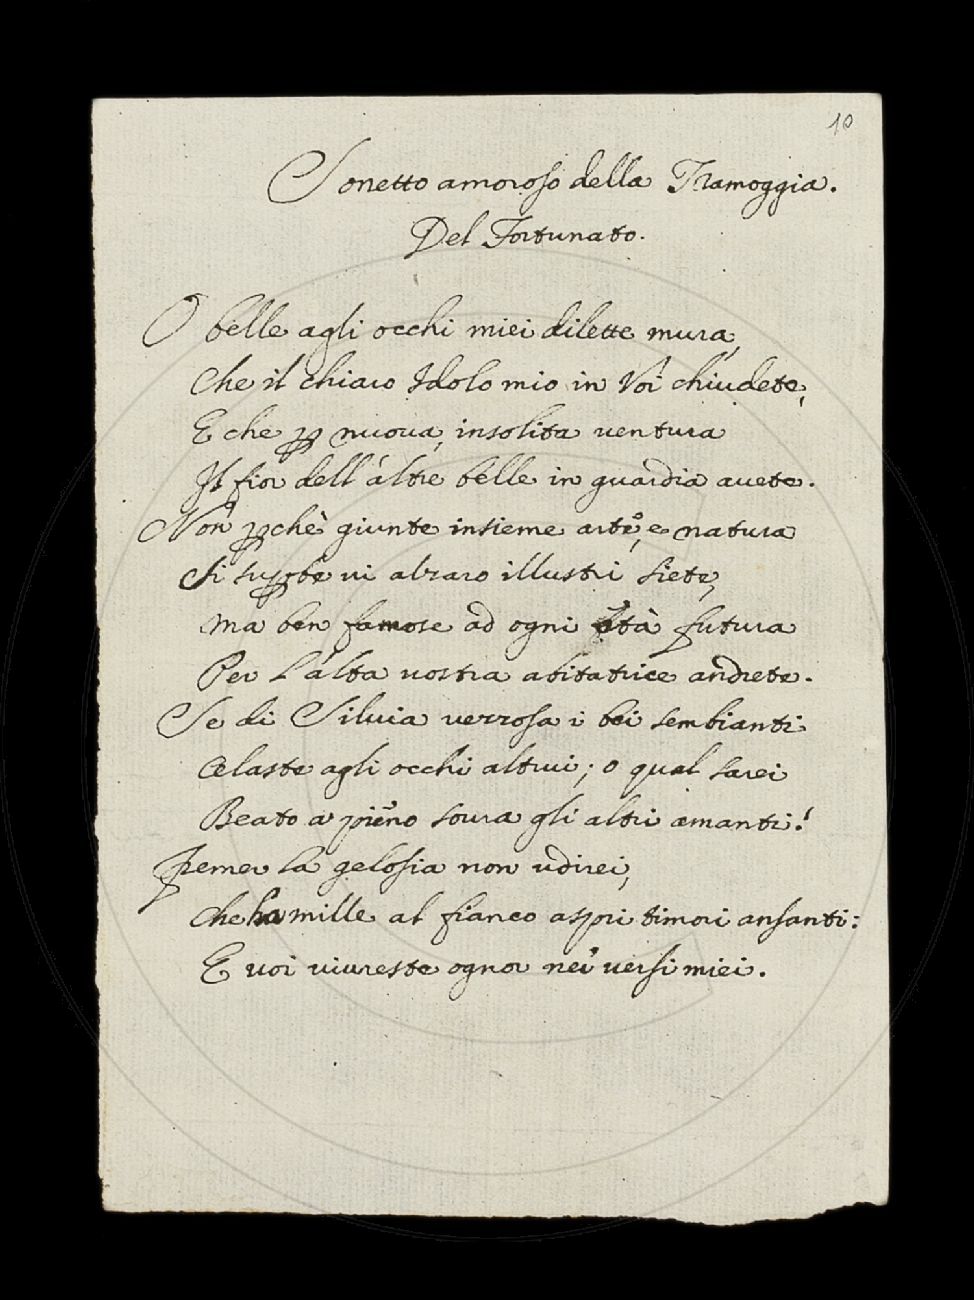 10
Sonetto amoroso della Tramoggia.
Del Fortunato.
O belle agli occhi miei dilette mura,
Che il chiaro Idolo mio in Voi chiudete,
E che p nuova, insolita ventura
Il fior dell'altre belle in guardia avete.
Non pchè giunte insieme arte, e natura
Si supbe vi alzaro illustri siete,
Ma ben famose ad ogni età futura
Per l'alta vostra abitatrice andrete.
Se di Silvia vezzosa i bei sembianti
Celaste agli occhi altrui; o qual sarei
Beato a pieno sovra gli altri amanti!
Fremer la gelosia non udirei,
Che ha mille al fianco aspri timori ansanti:
E voi vivreste ognor nei versi miei.